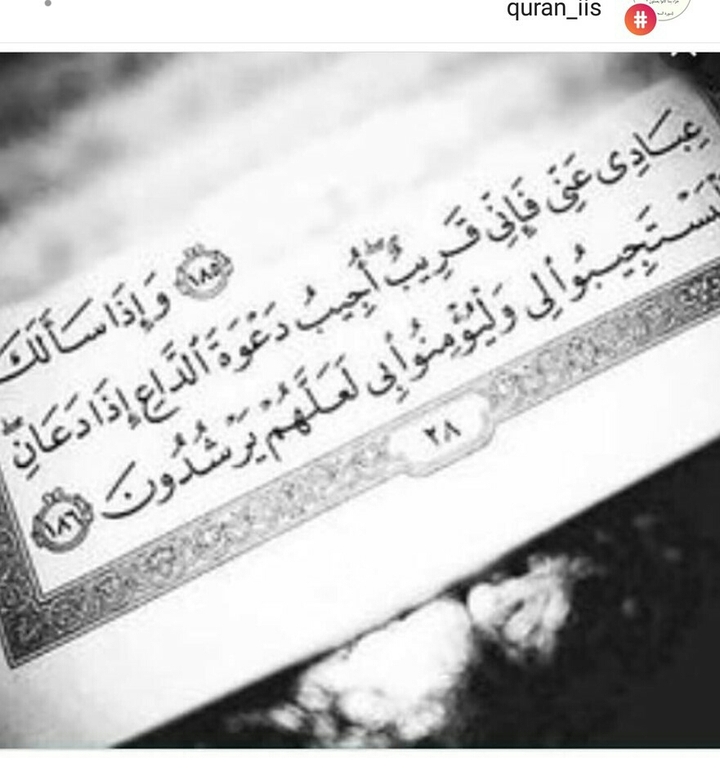 quran_iis
#
١٨٥ وَإِذَا سَأَلَكَ
عِبَادِى عَنِّى فَإِنِّى قَرِيبٌ ۖ أُجِيبُ دَعْوَةَ ٱلدَّاعِ إِذَا دَعَانِ ۖ
لْيَسْتَجِيبُوا۟ لِى وَلْيُؤْمِنُوا۟ بِى لَعَلَّهُمْ يَرْشُدُونَ ١٨٦
٢٨